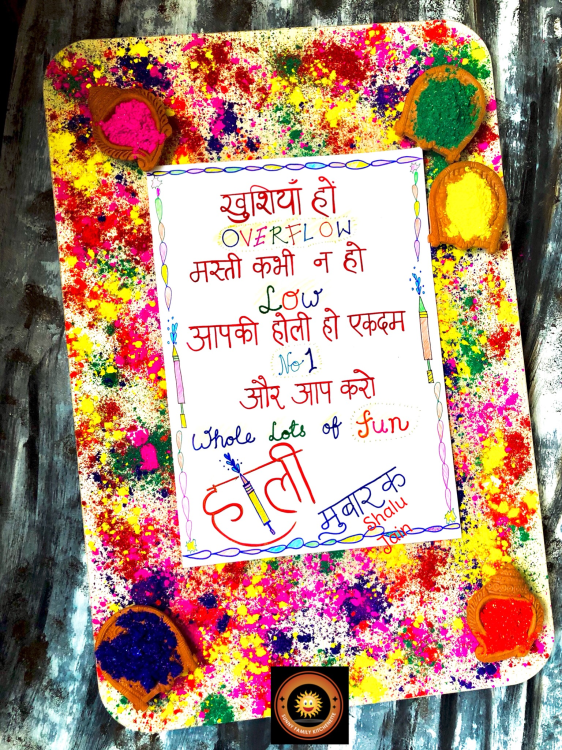 खुशियाँ हो
OVERFLOW
मस्ती कभी न हो
LOW
आपकी होली हो एकदम
No 1
और आप करो
Whole Lots of fun
होली
मुबारक
Shalu
Jain